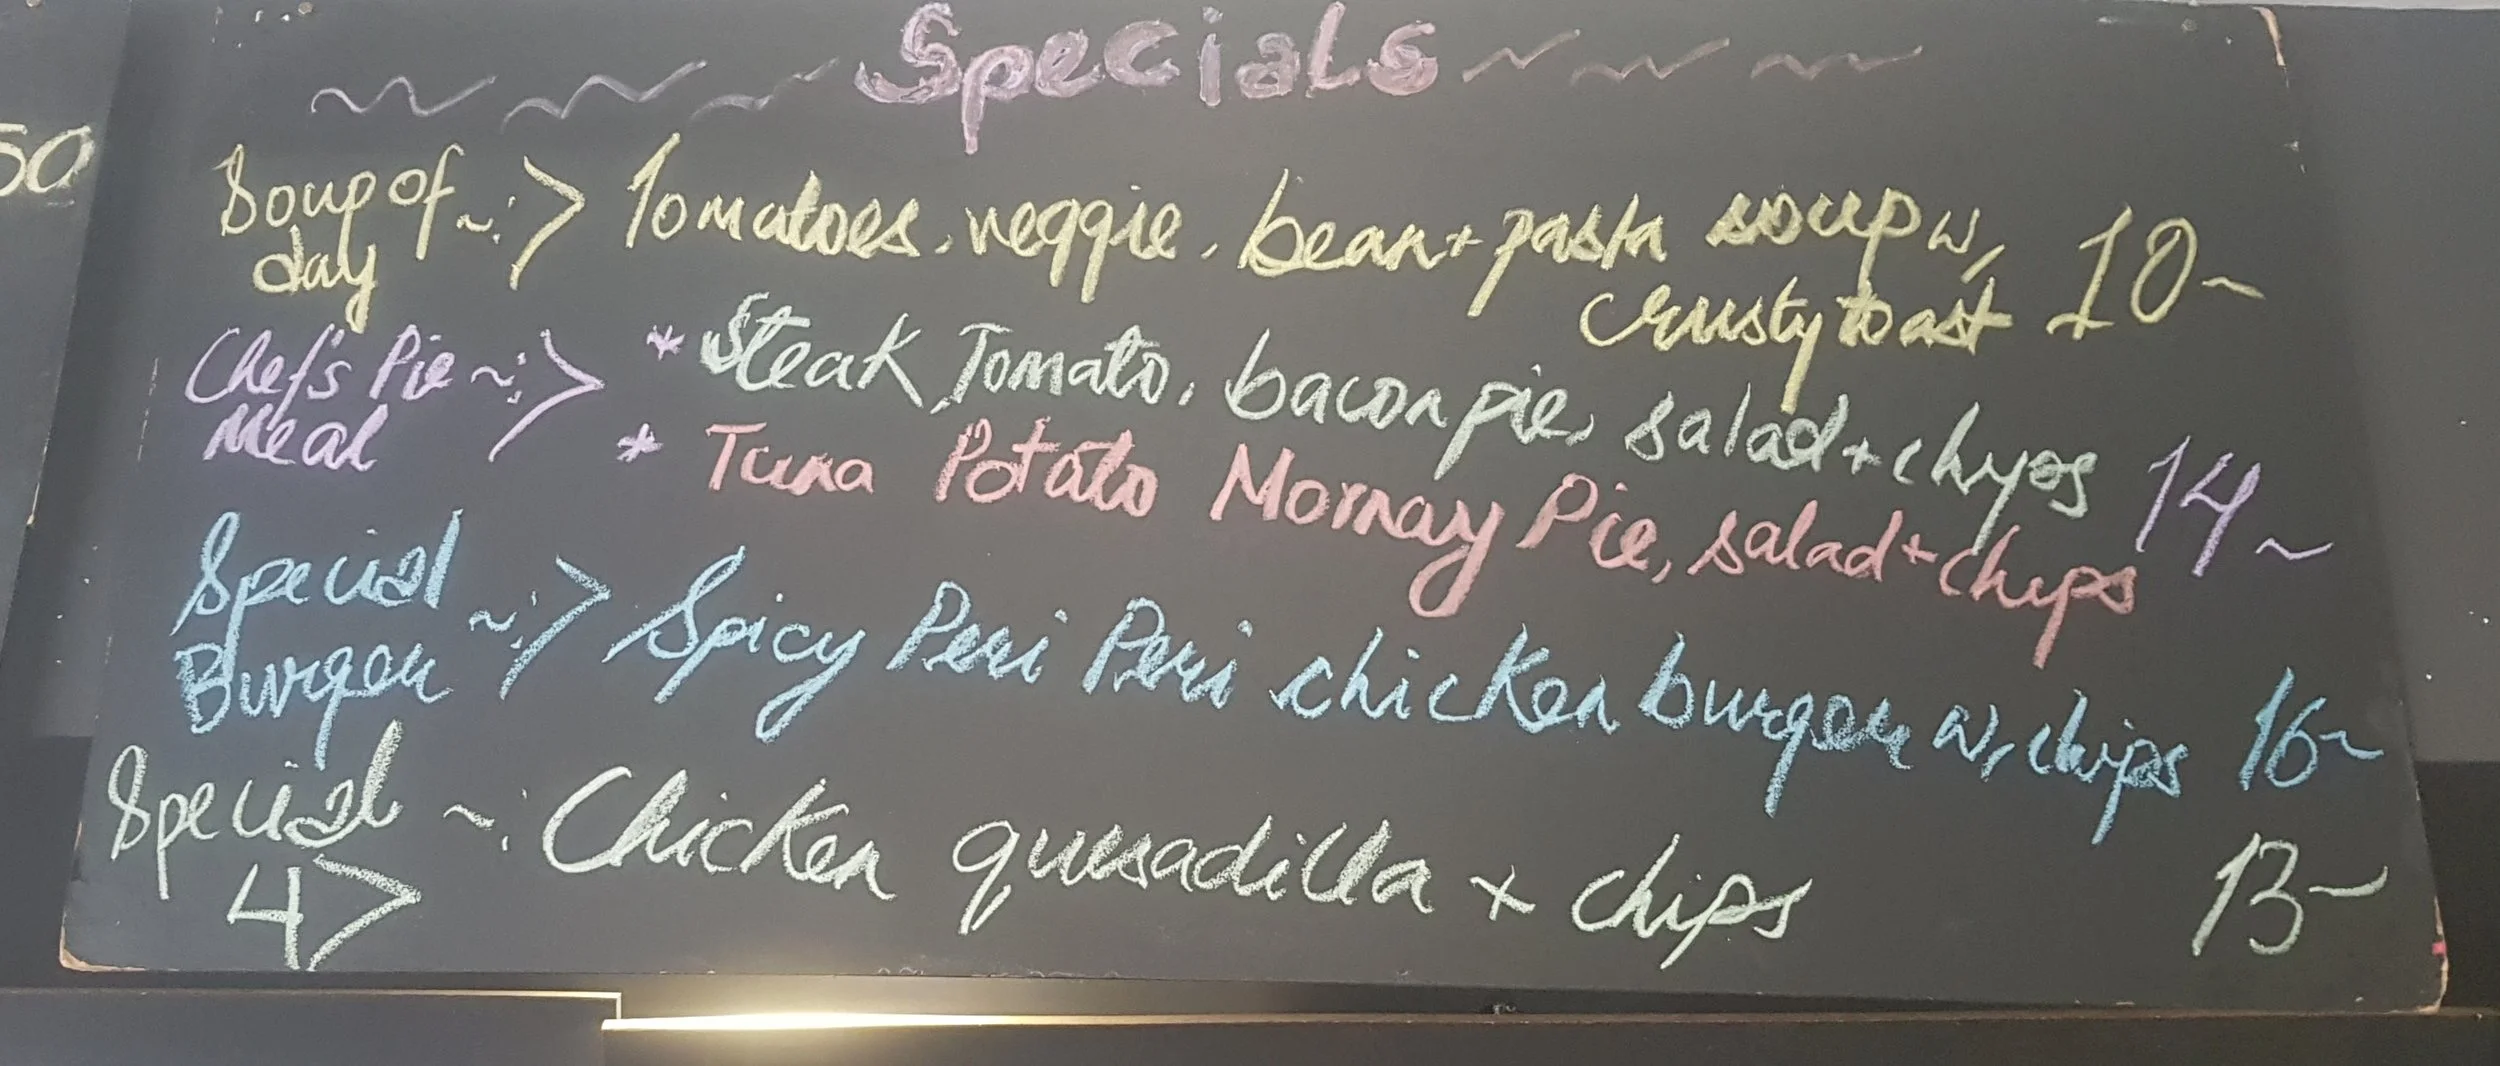 Specials
50
Soup of day ~:> Tomatoes, veggie, bean + pasta soup w, 10~
crusty toast
Chef's Pie Meal ~:> * Steak, Tomato, bacon pie, salad + chips 14~
* Tuna Potato Mornay Pie, salad + chips
Special Burger ~:> Spicy Peri Peri chicken burger w, chips 16~
Special 4> ~: Chicken quesadilla + chips 13~